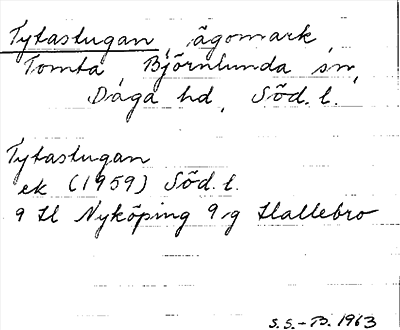 Tytastugan ägomark,
Tomta Björnlunda sn,
Daga hd, Söd. l.
Tytastugan
ek (1959) Söd. l.
9 H Nyköping 9 g Hallebro
S.S.-B. 1963